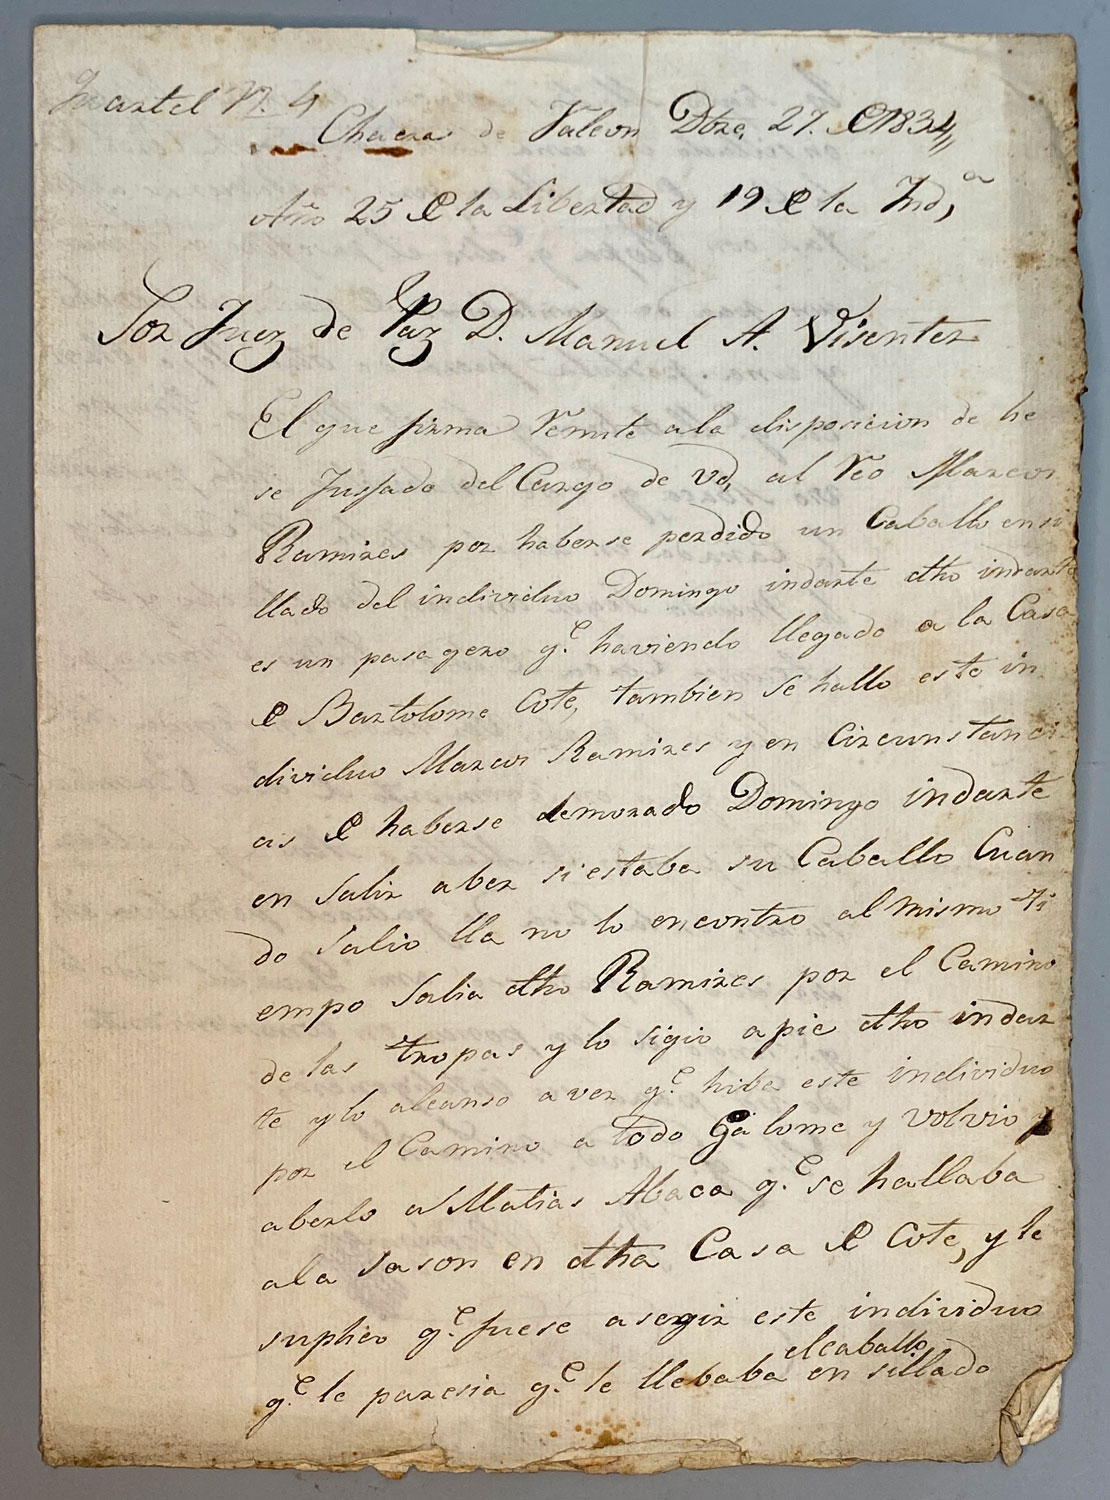 Cuartel N. 4
Chacra de Valeon Dbre, 27. de 1834,,
Año 25 de la Libertad y 19 de la Indª,
Sor Juez de Paz D. Manuel A. Visenter
El que firma remite a la disposicion de he
se Jusgado del Cargo de Vd, al reo Marcos
Ramires por haberse perdido un Caballo ensi
llado del individuo Domingo indarte dho indarte
es un pasagero q.e haviendo llegado a la Casa
de Bartolome Cote, tambien se hallo este in
dividuo Marcos Ramires y en Circunstanci
as de haberse demorado Domingo indarte
en Salir aber si estaba su Caballo Cuan
do Salio lla no lo encontro al mismo ti
empo Salia dho Ramires por el Camino
de las tropas y lo sigio apie dho indar
te y lo alcanso aver q.e hiba este individuo
por el Camino a todo galome y volvio y
aberlo a Matias Abaca q.e se hallaba
ala sason en dha Casa de Cote, y le
suplico q.e fuese asegir este individuo
q.e le paresia q.e le llebaba el caballo en sillado